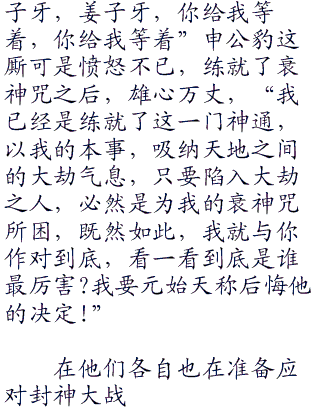 子牙，姜子牙，你给我等
着，你给我等着”申公豹这
厮可是愤怒不已，练就了衰
神咒之后，雄心万丈，“我
已经是练就了这一门神通，
以我的本事，吸纳天地之间
的大劫气息，只要陷入大劫
之人，必然是为我的衰神咒
所困，既然如此，我就与你
作对到底，看一看到底是谁
最厉害?我要元始天称后悔他
的决定!”
在他们各自也在准备应
对封神大战